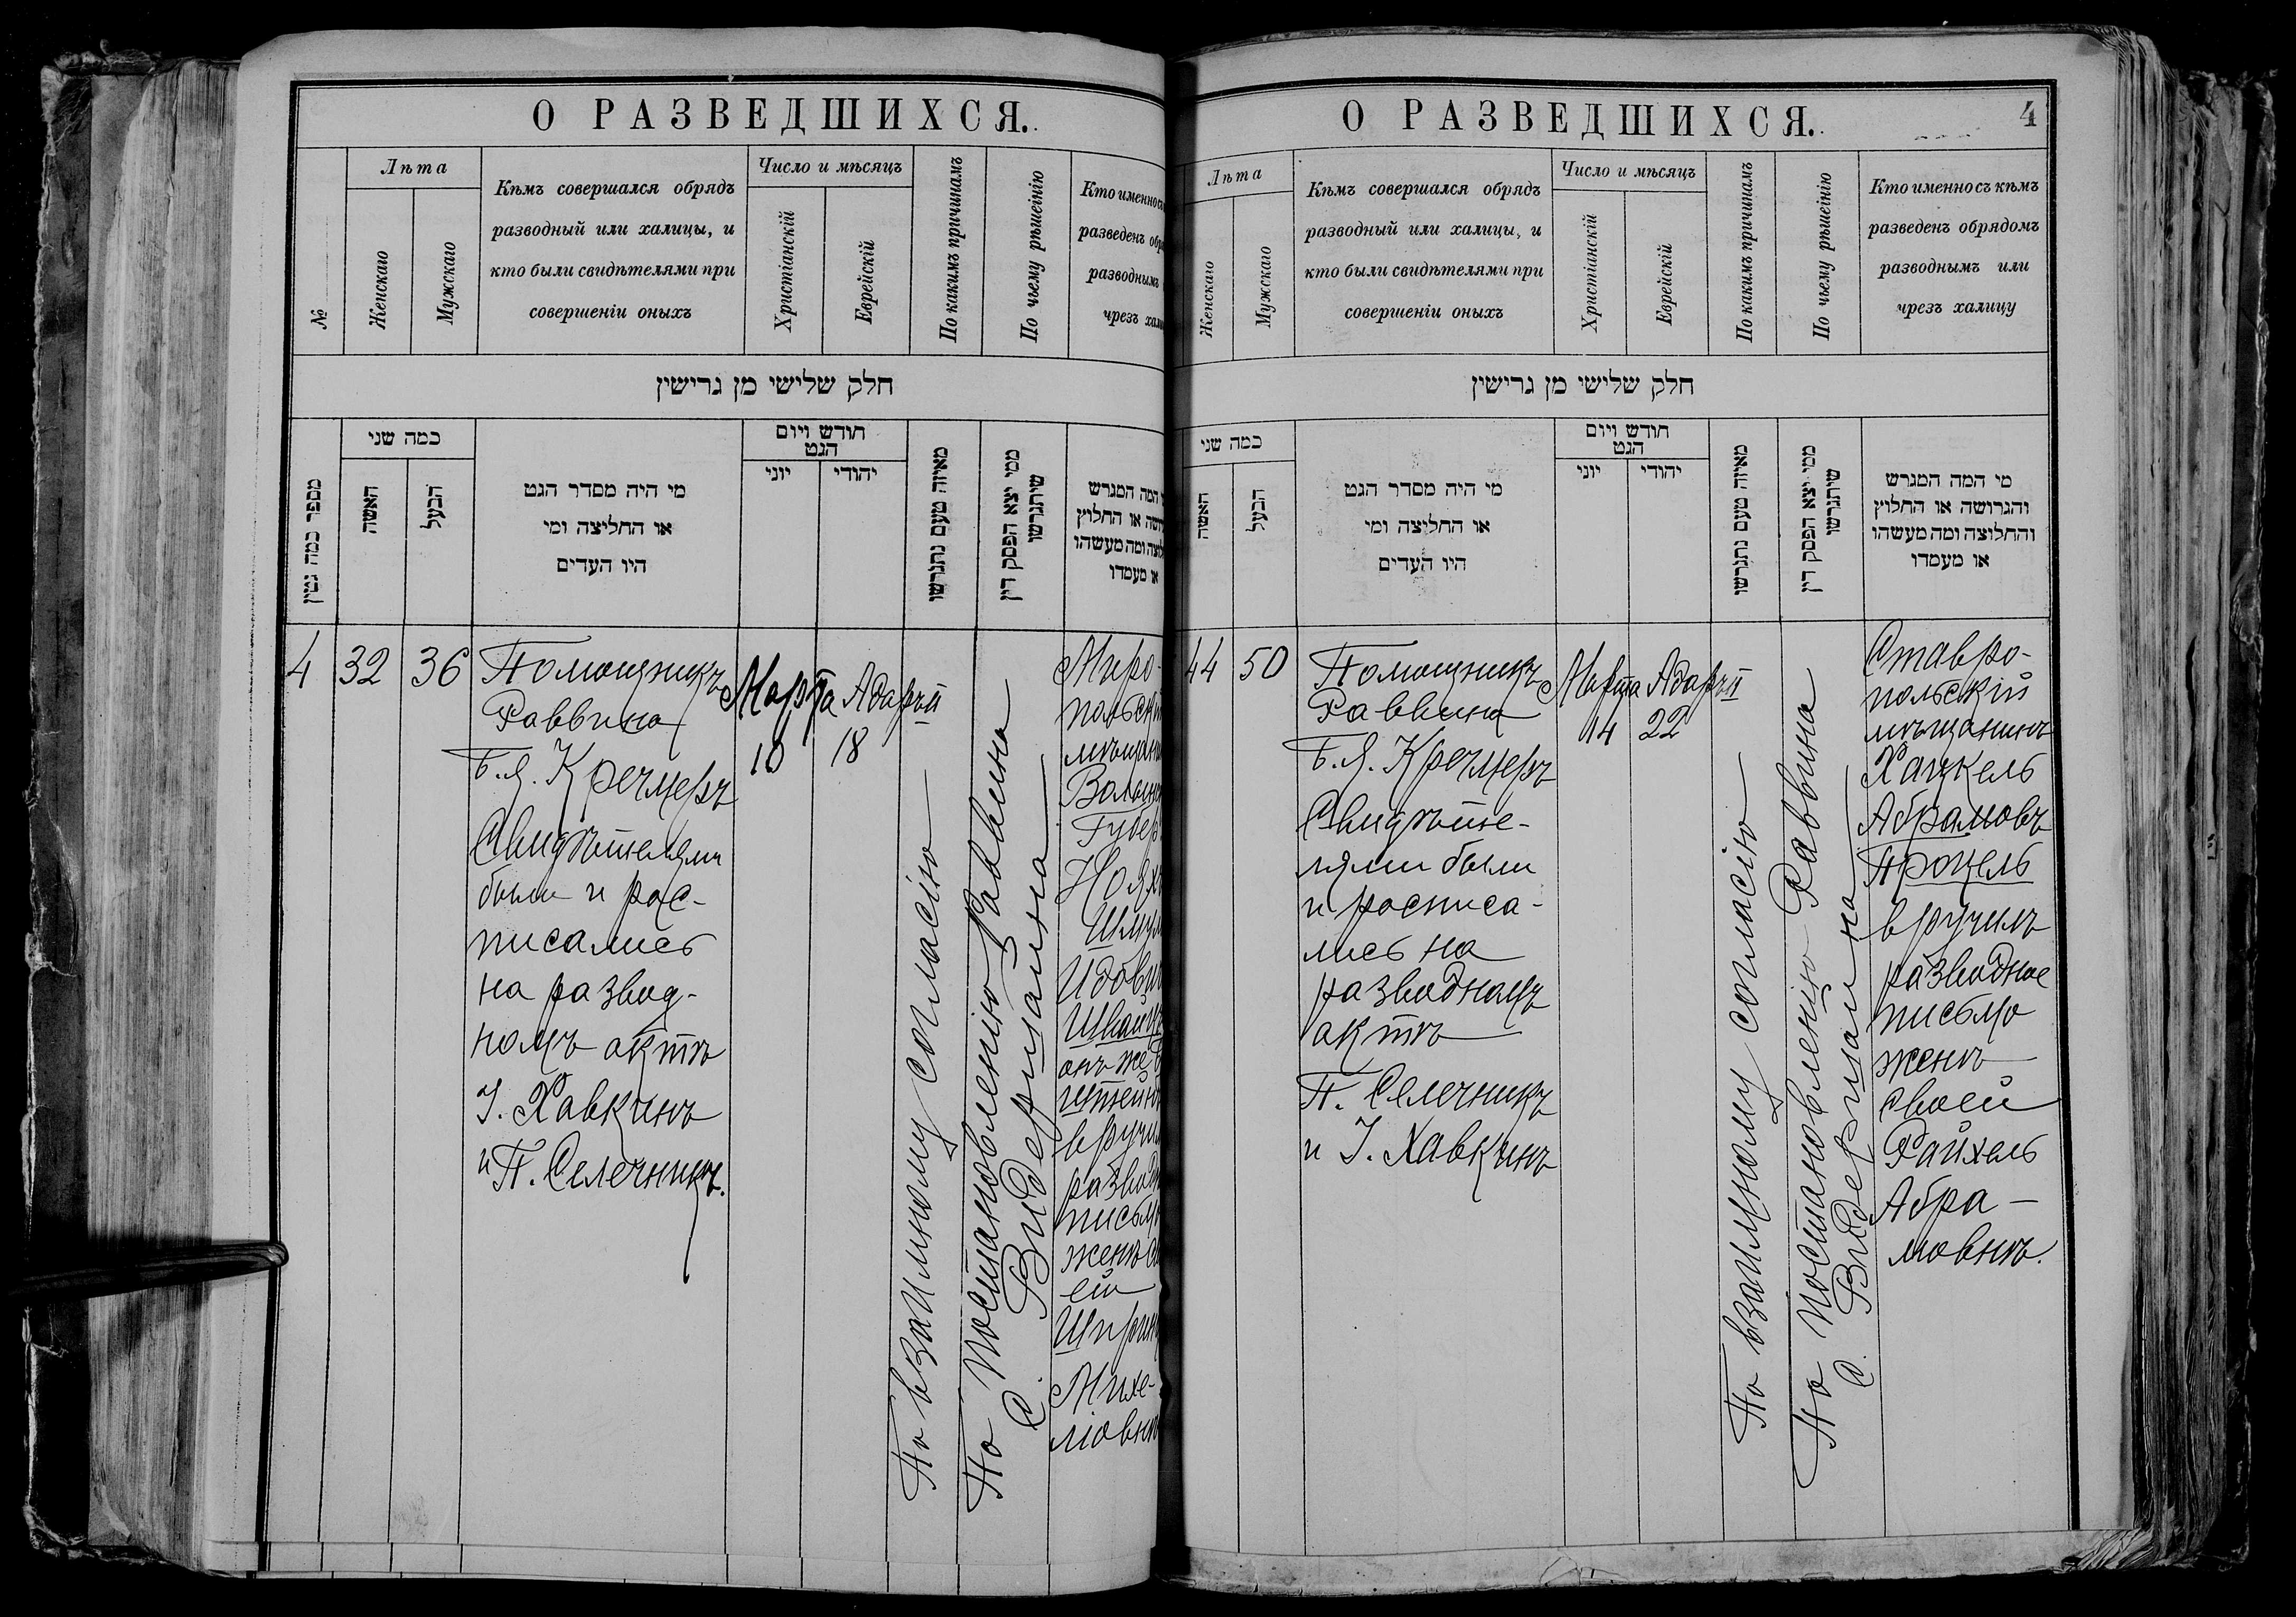 О РАЗВЕДШИХСЯ.
№
Лѣта
Женскаго
Мужскаго
Кѣмъ совершался обрядъ
разводный или халицы, и
кто были свидѣтелями при
совершеніи оныхъ
Число и мѣсяцъ
Христіанскій
Еврейскій
По какимъ причинамъ
По чьему рѣшенію
Кто именно съ
разведенъ обр
разводнымъ
чрезъ хал
חלק שלישי מן גרישין
מספר כמה גטין
כמה שני
האשה
הבעל
מי היה מסדר הגט
או החליצה ומי
היו העדים
חודש ויום
הגט
יוני
יהודי
מאיזה טעם נתגרשו
ממי יצא הפסק דין
שיתגרשו
המה המגרש
או החלוץ
ומה מעשהו
או מעמדו
4
32
36
Помощникъ
Раввина
Б. Я. Кречмеръ
Свидѣтелями
были и рас-
писались
на развод-
номъ актѣ
І. Хавкинъ
и П. Селечникъ.
Марта
10
Адаръ II
18
По взаимному согласію
По постановленію Раввина
С. Бидермана
Миро-
польск
мѣщан
Волын
Губер
Шмул
вручи
развод
письм
женѣ с
ей
Михе-
ловн
О РАЗВЕДШИХСЯ.
4
Лѣта
Женскаго
Мужскаго
Кѣмъ совершался обрядъ
разводный или халицы, и
кто были свидѣтелями при
совершеніи оныхъ
Число и мѣсяцъ
Христіанскій
Еврейскій
По какимъ причинамъ
По чьему рѣшенію
Кто именно съ кѣмъ
разведенъ обрядомъ
разводнымъ или
чрезъ халицу
חלק שלישי מן גרישין
כמה שני
האשה
הבעל
מי היה מסדר הגט
או החליצה ומי
היו העדים
חודש ויום
הגט
יוני
יהודי
מאיזה טעם נתגרשו
ממי יצא הפסק דין
שיתגרשו
מי המה המגרש
והגרושה או החלוץ
והחלוצה ומה מעשהו
או מעמדו
44
50
Помощникъ
Раввина
Б. Я. Кречмеръ
Свидѣте-
лями были
и росписа-
лись на
разводномъ
актѣ
П. Селечникъ
и І. Хавкинъ
Марта
14
Адаръ II
22
По взаимному согласію
По постановленію Раввина
С. Бидермана
Ставро-
польскій
мѣщанинъ
Хацкель
Абрамовъ
Троцель
вручилъ
разводное
письмо
женѣ
своей
Райхель
Абра-
мовнѣ.